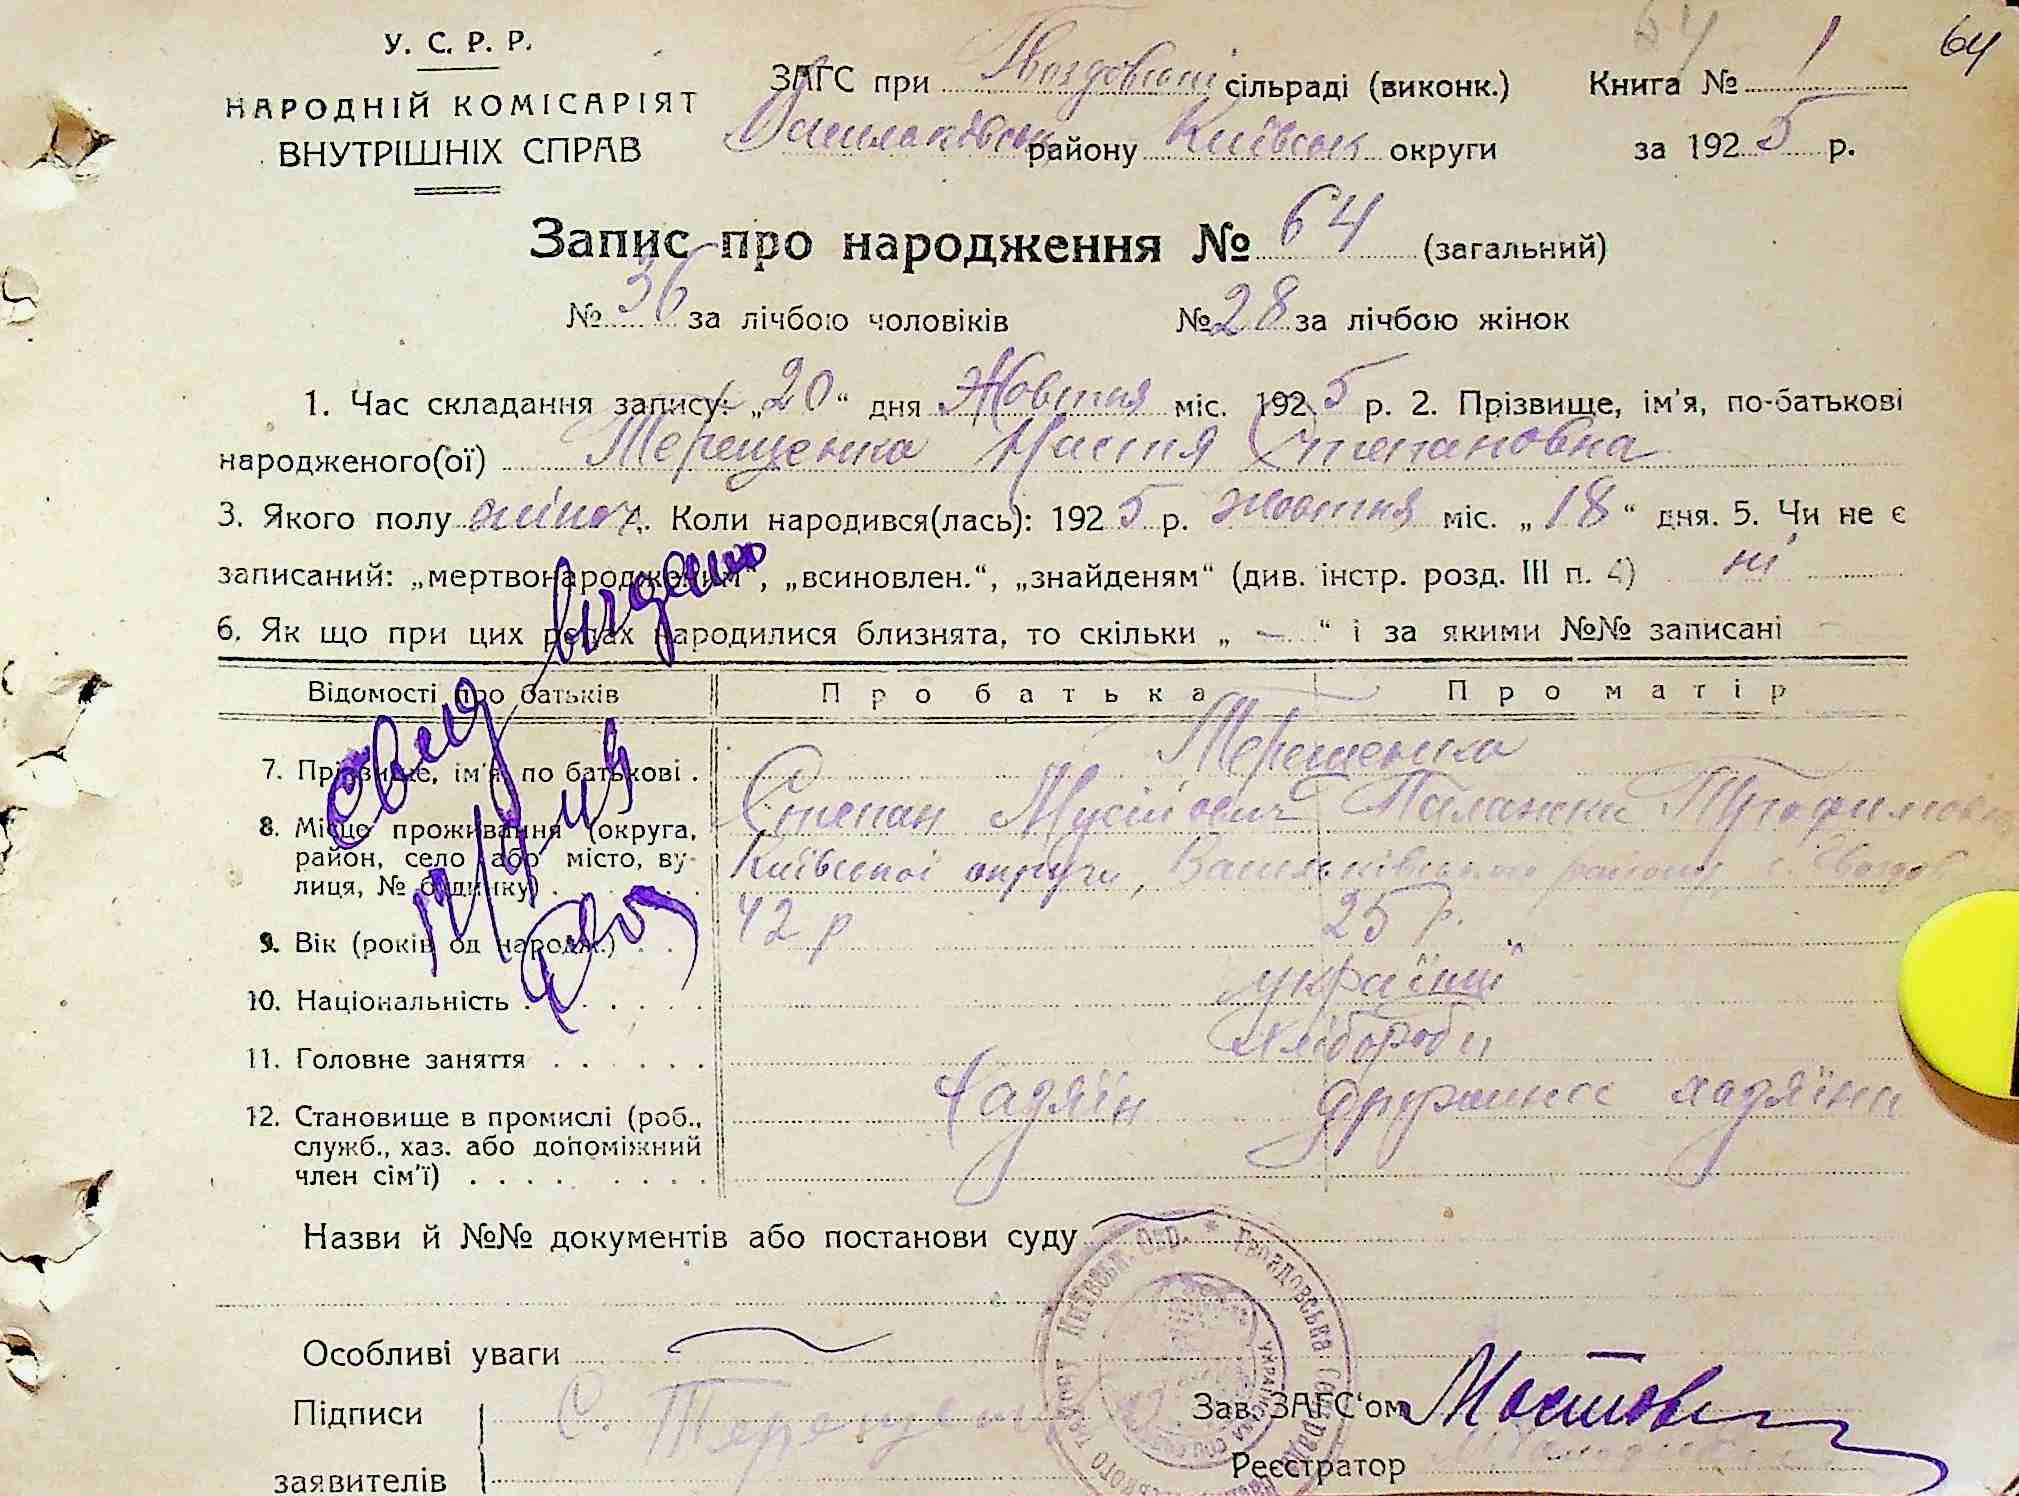 У. С. Р. Р.
НАРОДНІЙ КОМІСАРІЯТ
ВНУТРІШНІХ СПРАВ
ЗАГС при Гвоздовській сільраді (виконк.) Книга № 1
64
64
Васильківськ району Київськ округи за 1925 р.
Запис про народження № 64 (загальний)
№ 36 за лічбою чоловіків № 28 за лічбою жінок
1. Час складання запису: „20“ дня Жовтня міс. 1925 р. 2. Прізвище, ім'я, по-батькові
народженого(ої) Терещенко Настя Степановна
3. Якого полу жіноч 4. Коли народився(лась): 1925 р. жовтня міс. „18“ дня. 5. Чи не є
записаний: „мертвонародженим“, „всиновлен.“, „знайденям“ (див. інстр. розд. III п. 4) ні
6. Як що при цих родах народилися близнята, то скільки „ – “ і за якими №№ записані –
Відомості про батьків Про батька Про матір
7. Прізвище, ім'я, по батькові . Терещенко
Степан Мусійович Палажка Трофимовн
8. Місце проживання (округа,
район, село або місто, ву-
лиця, № будинку) . Київської округи, Васильківського району, с. Гвоздов
9. Вік (років од народж.) . . 42 р 25 р.
10. Національність . . . . . . українці
11. Головне заняття . . . . . . хлібороби
12. Становище в промислі (роб.,
служб., хаз. або допоміжний
член сім'ї) . . . . . . . . хадяїн дружина хадяїна
свид видано
Назви й №№ документів або постанови суду
Особливі уваги
Підписи
заявителів
С. Терещенко
Зав. ЗАГС'ом Мостов
Реєстратор
Гвоздовська Сільрада
Київськ. Окр.